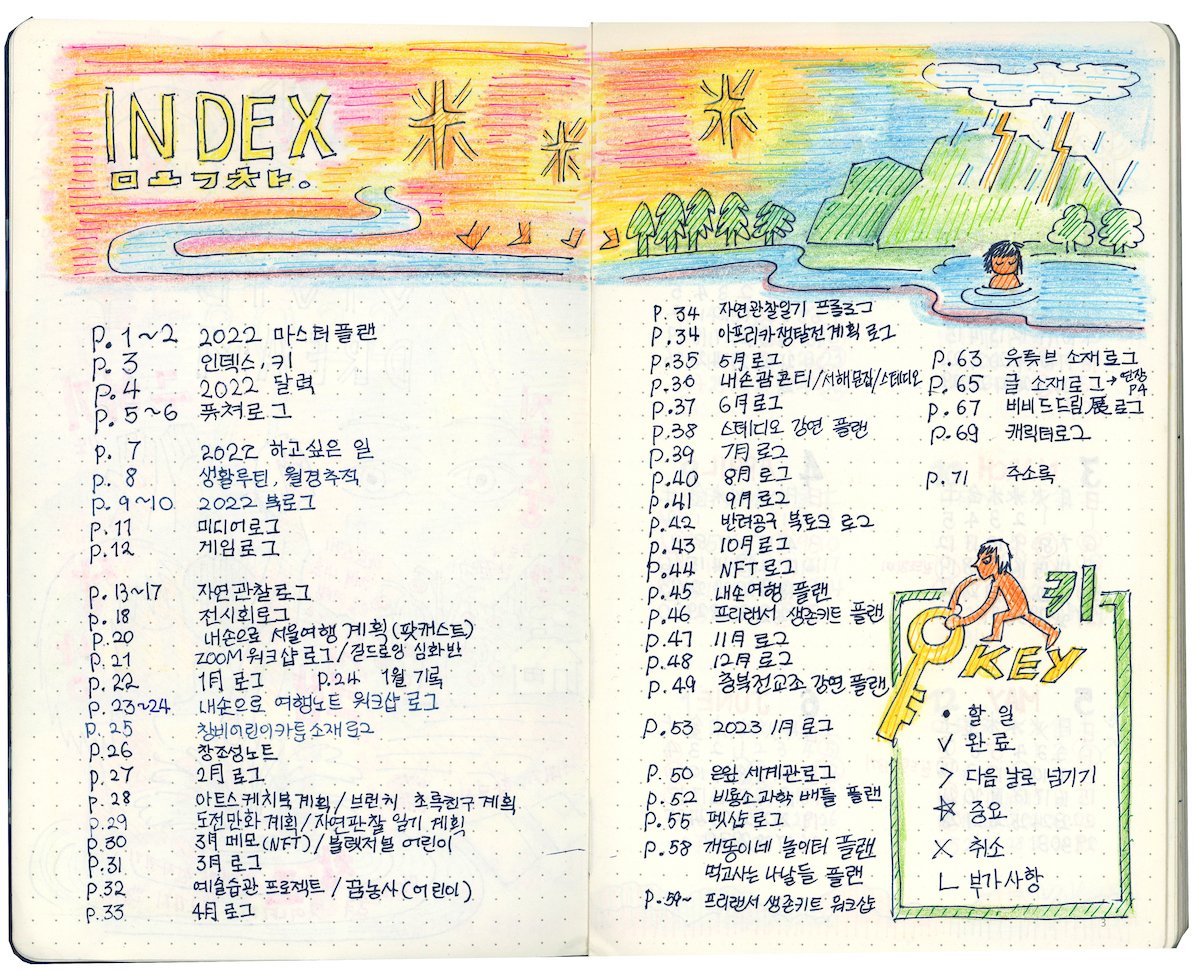 INDEX
목차.
p.1~2 2022 마스터플랜
p.3 인덱스, 키
p.4 2022 달력
p.5~6 퓨쳐로그
p.7 2022 하고싶은 일
p.8 생활루틴, 월경추적
p.9~10 2022 북로그
p.11 미디어로그
p.12 게임로그
p.13~17 자연관찰로그
p.18 전시회로그
p.20 내손으로 서울여행 계획(팟캐스트)
p.21 ZOOM 워크샵 로그/길드로잉 심화반
p.22 1月 로그 p.24 1월 기록
p.23~24 내손으로 여행노트 워크샵 로그
p.25 창비어린이카툰소재로그
p.26 창조성노트
p.27 2月 로그
p.28 아트스케치북계획/브런치, 초록친구계획
p.29 도전만화계획/자연관찰 일기 계획
p.30 3月 메모(NFT)/불렛저널 어린이
p.31 3月 로그
p.32 예술습관 프로젝트/꿈농사(어린이)
p.33 4月 로그
p.34 자연관찰일기 프롤로그
p.34 아프리카쟁탈전계획 로그
p.35 5月 로그
p.36 내손광콘티/서해문집/스테디오
p.37 6月 로그
p.38 스테디오 강연 플랜
p.39 7月 로그
p.40 8月 로그
p.41 9月 로그
p.42 반려공구 북토크 로그
p.43 10月 로그
p.44 NFT 로그
p.45 내손여행 플랜
p.46 프리랜서 생존키트 플랜
p.47 11月 로그
p.48 12月 로그
p.49 충북전교조 강연 플랜
p.53 2023 1月 로그
p.50 은잎 세계관로그
p.52 비룡소과학 배틀 플랜
p.55 펫샵 로그
p.58 개똥이네 놀이터 플랜
먹고사는 나날들 플랜
p.59~ 프리랜서 생존키트 워크샵
p.63 유튜브 소재로그
p.65 글 소재로그 → 연장 P4
p.67 비비드드림展 로그
p.69 캐릭터로그
p.71 주소록
키
KEY
• 할 일
✓ 완료
> 다음 날로 넘기기
☆ 중요
X 취소
ㄴ 부가사항
3